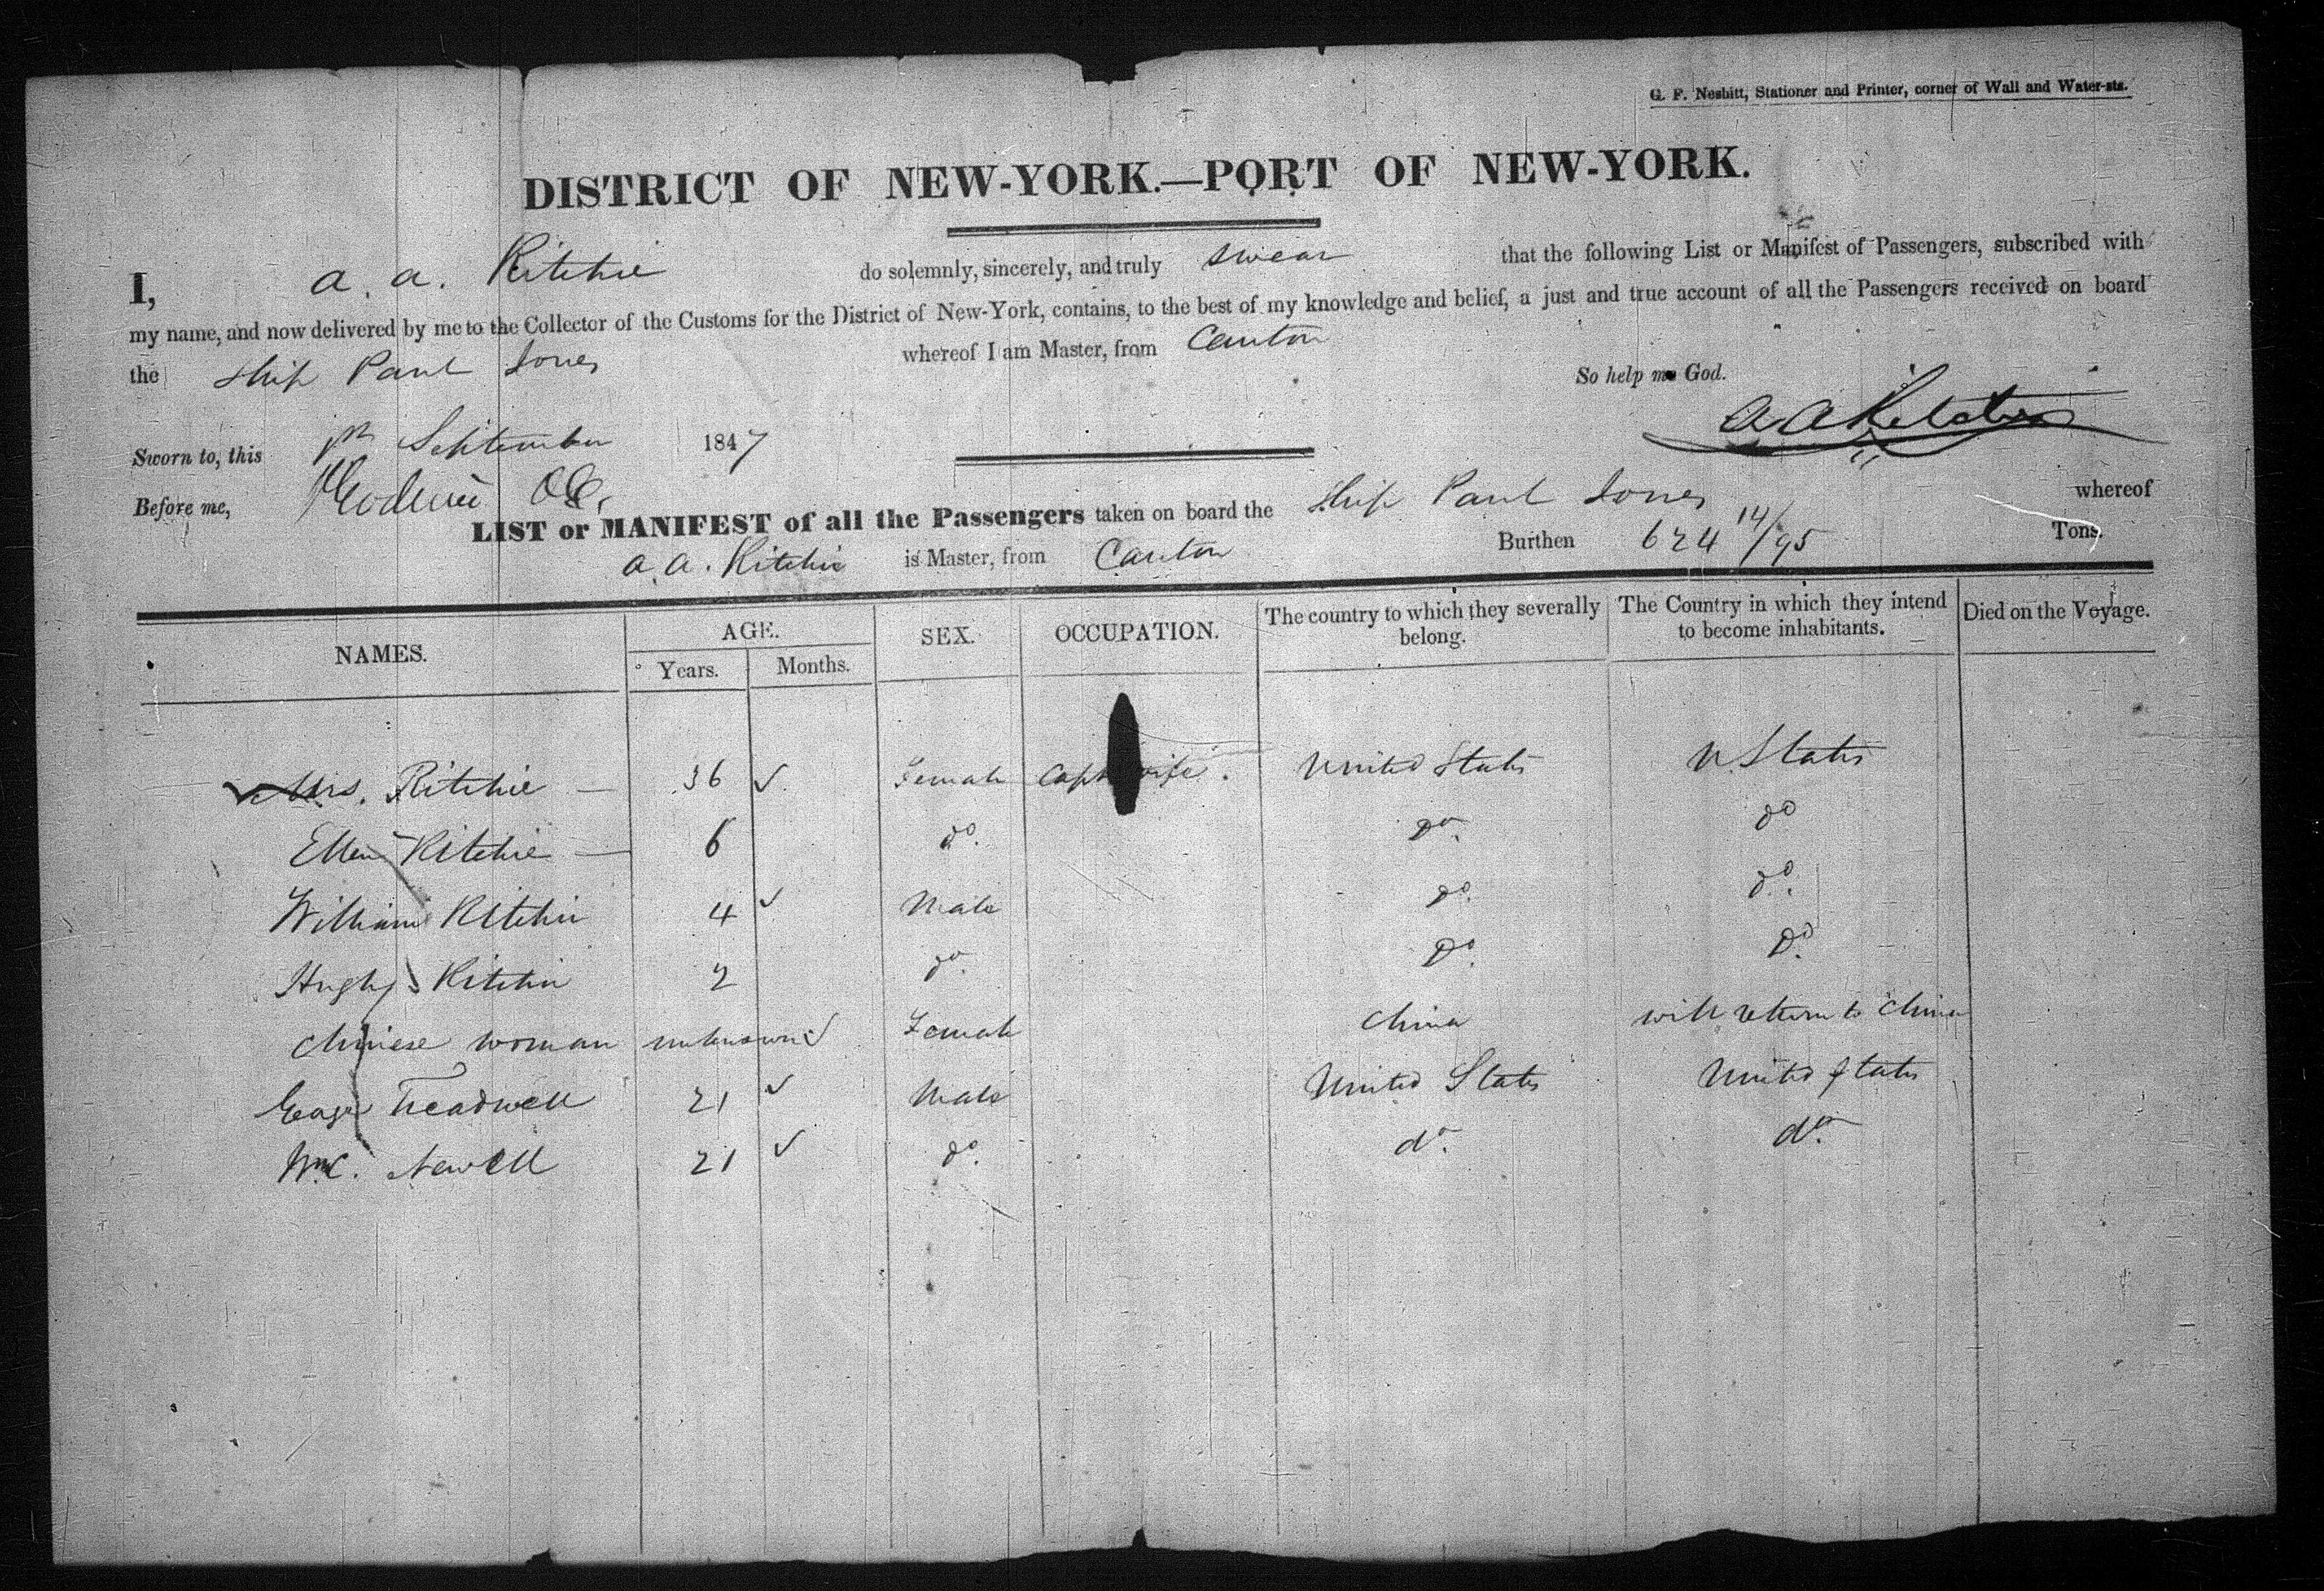 G. F. Nesbitt, Stationer and Printer, corner of Wall and Water-sts.
DISTRICT OF NEW-YORK.—PORT OF NEW-YORK.
I, A. A. Ritchie do solemnly, sincerely, and truly swear that the following List or Manifest of Passengers, subscribed with
my name, and now delivered by me to the Collector of the Customs for the District of New-York, contains, to the best of my knowledge and belief, a just and true account of all the Passengers received on board
the Ship Paul Jones whereof I am Master, from Canton
So help me God.
A A Ritchie
Sworn to, this September 1847
Before me,
LIST or MANIFEST of all the Passengers taken on board the Ship Paul Jones whereof
A. A. Ritchie is Master, from Canton Burthen 624 14/95 Tons.
NAMES. AGE. Years. Months. SEX. OCCUPATION. The country to which they severally belong. The Country in which they intend to become inhabitants. Died on the Voyage.
Mrs. Ritchie — 36 Female Capt wife. United States U. States
Ellen Ritchie — 6 do. do. do
William Ritchie 4 Male do. do.
Hugh Ritchie 2 do. do. do.
Chinese woman unknown Female China will return to China
Treadwell 21 Male United States United States
Wm C. Newell 21 do. do. do.